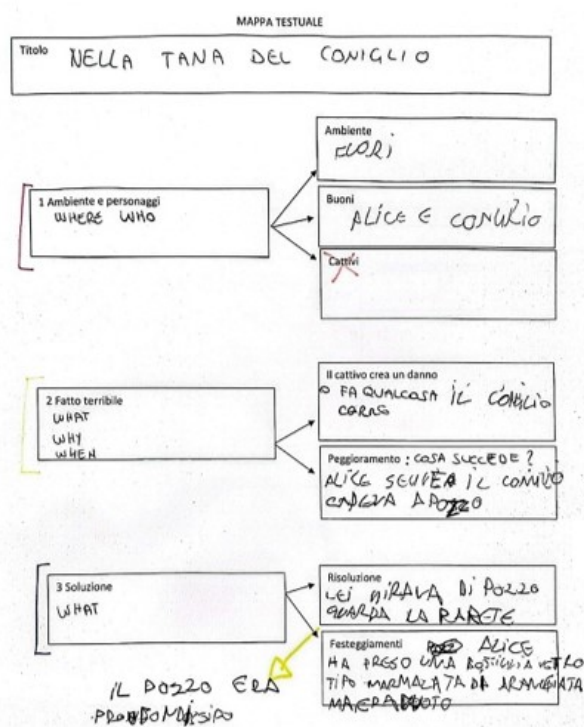 MAPPA TESTUALE
Titolo NELLA TANA DEL CONIGLIO
Ambiente
FLORI
1 Ambiente e personaggi
WHERE WHO
Buoni
ALICE E CONILIO
Cattivi
2 Fatto terribile
WHAT
WHY
WHEN
Il cattivo crea un danno
O FA QUALCOSA IL CONILIO
CORRO
Peggioramento : COSA SUCCEDE ?
ALICE SEUVEA IL CONILIO
CADEVA A POZZO
3 Soluzione
WHAT
Risoluzione
LEI MIRAVA DI POZZO
GUARDA LA PARETE
Festeggiamenti ALICE
HA PRESO UNA VETRO
TIPO MARMALATA DA ARANGIATA
MA ERA
IL POZZO ERA